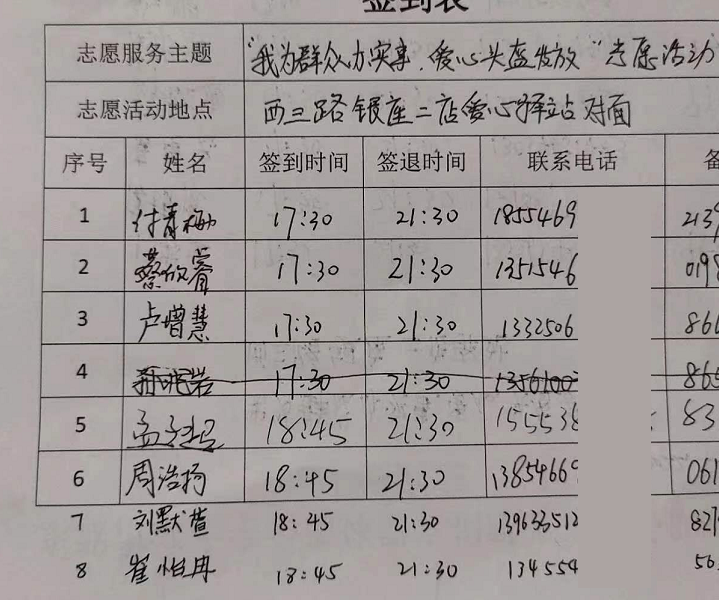 签到表
志愿服务主题 "我为群众办实事.爱心头盔发放"志愿活动
志愿活动地点 西三路银座二店爱心驿站对面
序号 姓名 签到时间 签退时间 联系电话 备
1 付青梅 17:30 21:30 1855469 2139
2 蔡欣睿 17:30 21:30 1351546 0198
3 卢增慧 17:30 21:30 1332506 866
4 17:30 21:30 1356100 865
5 孟 18:45 21:30 155538 83
6 周浩扬 18:45 21:30 13854669 061
7 刘默萱 18:45 21:30 139633512 827
8 崔怡冉 18:45 21:30 134554 56